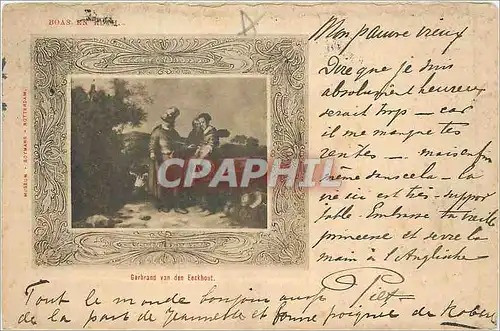 BOAS EN RUTH.
MUSEUM - BOYMANS - ROTTERDAM.
Gerbrand van den Eeckhout.
CPARAMA.COM
Mon pauvre vieux
Dire que je suis
absolument heureux
serait trop — car
il me manque tes
rentes — mais enfin
même sans cela — la
vie ici est très suppor
table. Embrasse ta vieille
princesse et serre la
main à l'Anglaise
Piet
Tout le monde bonjour aussi
de la part de Jeannette et bonne poignée de Robert